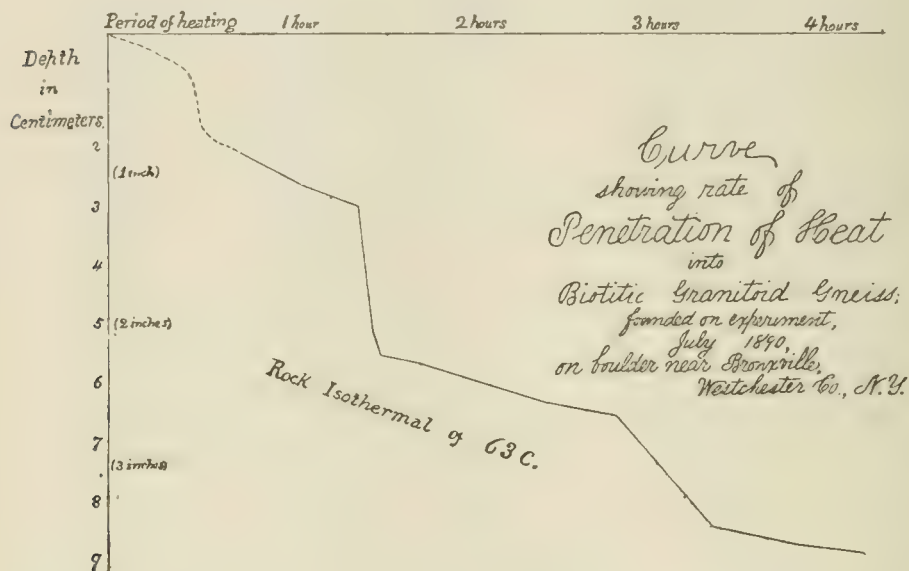 Period of heating 1 hour 2 hours 3 hours 4 hours
Depth
in
Centimeters
2
(1 inch)
3
4
5
(2 inches)
6
7
(3 inches)
8
9
Curve
showing rate of
Penetration of Heat
into
Biotitic Granitoid Gneiss;
founded on experiment,
July 1890,
on boulder near Bronxville,
Westchester Co., N.Y.
Rock Isothermal of 63 C.